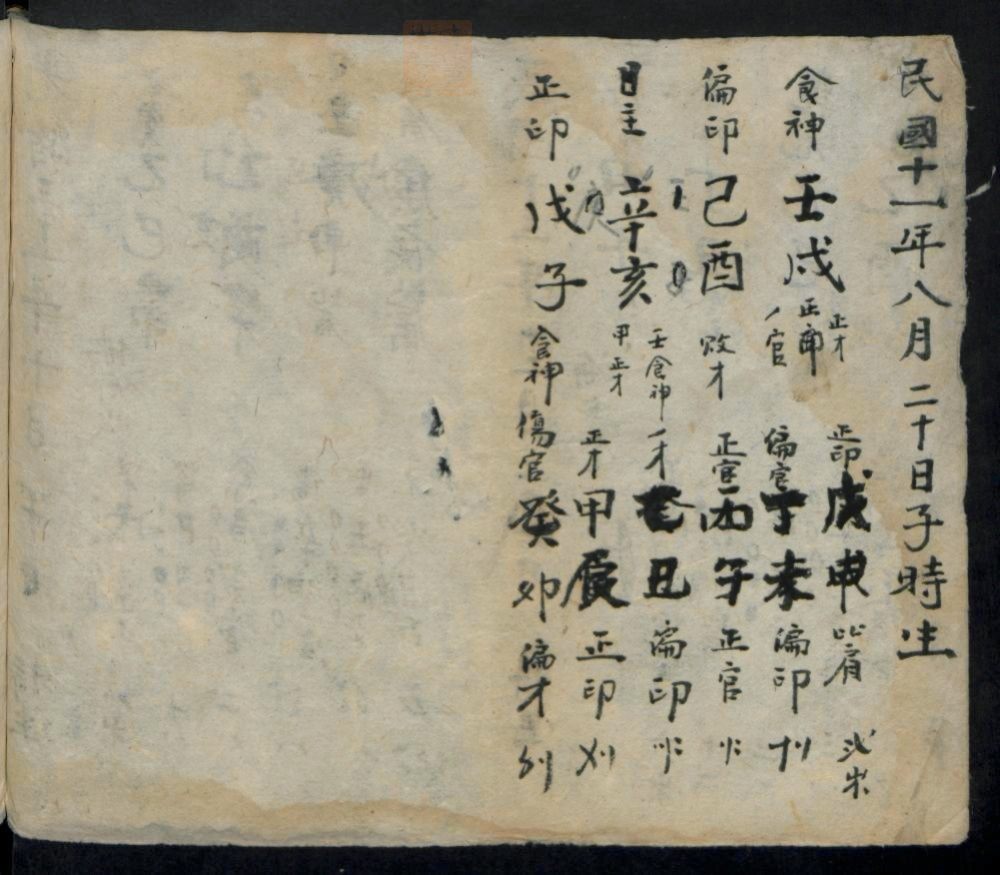 民國十一年八月二十日子時生
食神 壬戌 正印 正才 八官
偏印 己酉 敗才
日主 辛亥 壬食神 甲正才
正印 戊子 食神
正印 戊申 比肩
偏官 丁未 偏印
正官 丙午 正官
才 丑 偏印
正才 甲辰 正印
傷官 癸卯 偏才